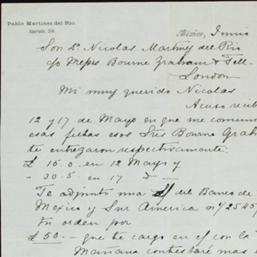 Pablo Martinez del Rio.
Mexico, Junio
Son Dn Nicolas Martinez del Rio
c/o Messrs Bourne Graham &
London
Mi muy querido Nicolas
Acuso recib
12 y 17 de Mayo en que me comuni
esas fechas esos Sres Bourne Graha
te entregaron respectivamente:
£ 16.0 en 12 Mayo y
- 30.5 en 17
Te adjunto una del Banco de
Mexico y Sur America nº 2545
tu orden por
£ 50 - que te cargo en c/ con la
Mañana contestaré mas